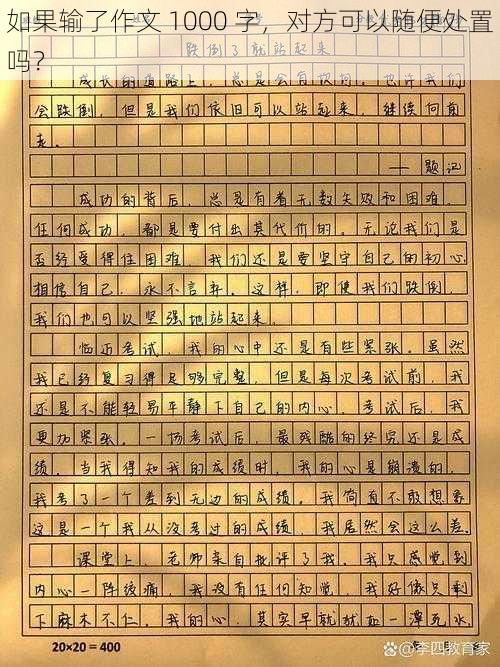 如果输了作文 1000 字，对方可以随便处置
吗？
跌倒了就站起来
成长的道路上，总会有坎坷。也许我们
会跌倒，但是我们依旧可以站起来，继续向前
走。
—— 题记
成功的背后，总是有着无数失败和困难。
任何成功，都是要付出其代价的。无论我们是
否经受得住困难，我们还是要坚守自己的初心，
相信自己，永不言弃。这样，即使我们跌倒，
我们也可以坚强地站起来。
临近考试，我的心中还是有些紧张。虽然
我已经复习得足够完整，但是每次考试前，我
还是不能轻易平静下自己的内心。考试后，我
更加紧张。一场考试后，最残酷的终究还是成
绩。当我得知我的成绩时，我的心是崩溃的。
我考了一个差到无边的成绩。我简直不敢想象
这是一个我从没考过的成绩，我居然会这么差。
课堂上，老师亲自批评了我。我只感觉到
内心一阵绞痛，我没有任何知觉，我好像只剩
下麻木不仁。我的心，其实早就犹如一潭死水
20×20=400
@李四教育家